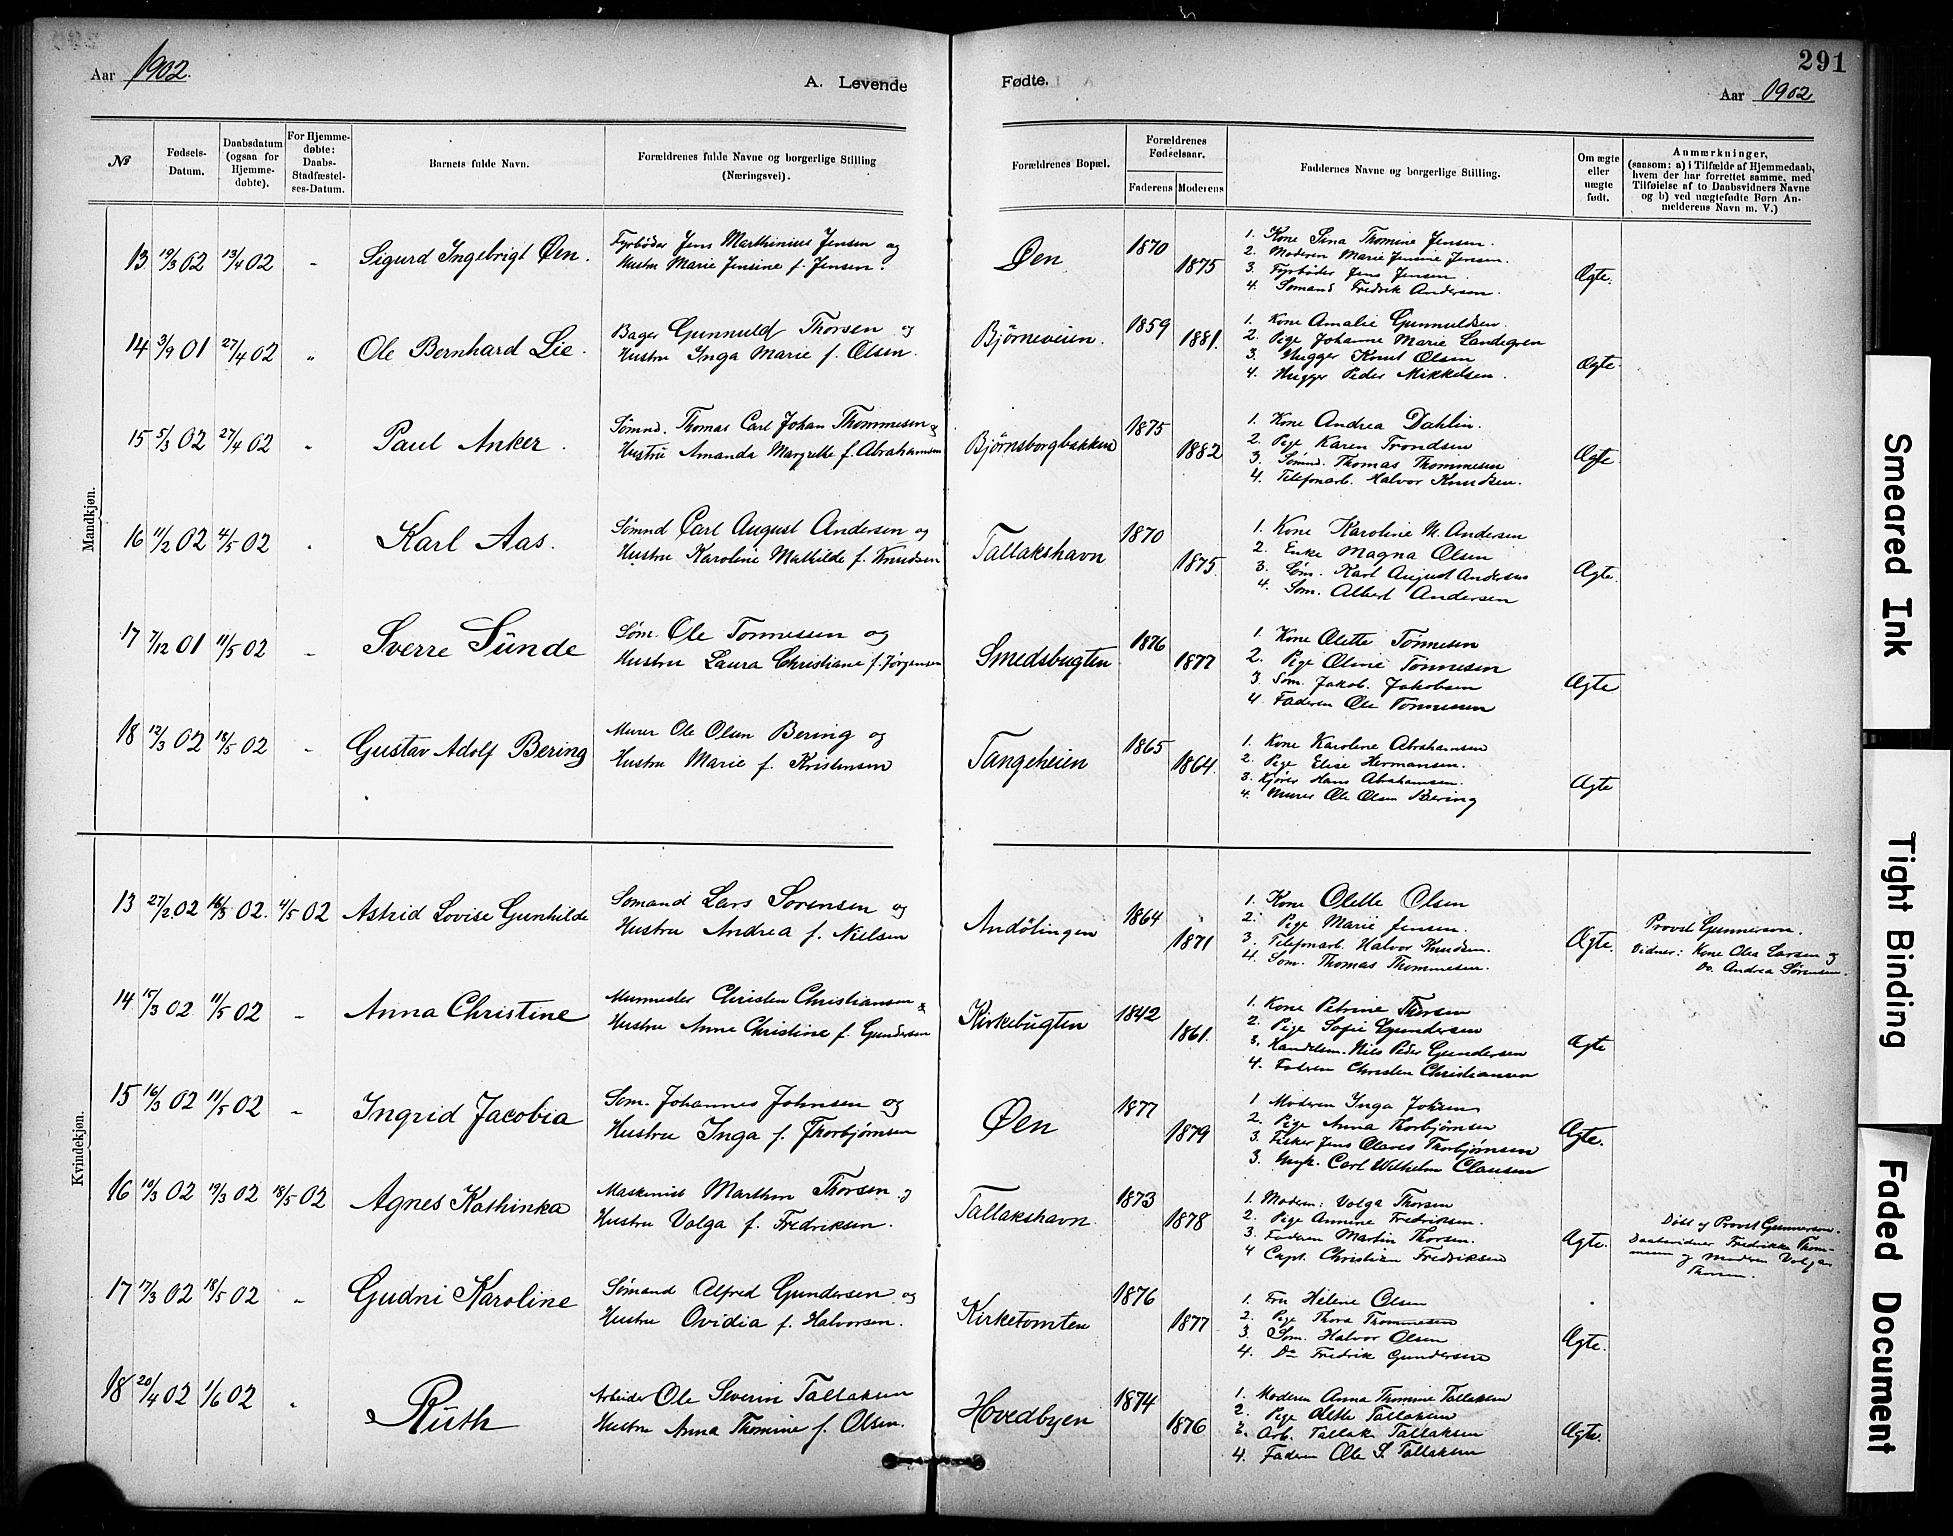 291
Aar 1902.
A. Levende
Fødte.
Aar 1902
№
Fødsels-Datum.
Daabsdatum (ogsaa for Hjemmedøbte).
For Hjemmedøbte: Daabs-Stadfæstelses-Datum.
Barnets fulde Navn.
Forældrenes fulde Navne og borgerlige Stilling (Næringsvei).
Forældrenes Bopæl.
Forældrenes Fødselsaar.
Faderens
Moderens
Faddernes Navne og borgerlige Stilling.
Om ægte eller uægte født.
Anmærkninger,
(saasom: a) i Tilfælde af Hjemmedaab,
hvem der har forrettet samme, med
Tilføielse af to Daabsvidners Navne
og b) ved uægtefødte Børn An-
melderens Navn m. V.)
Mandkjøn.
13 19/3 02 13/4 02 „ Sigurd Ingebrigt Øen.
Fyrbøder Jens Marthinius Jensen og
Hustru Marie Jensine f. Jensen.
Øen 1870 1875
1. Kone Sina Thomine Jensen.
2. Moderen Marie Jensine Jensen.
3. Fyrbøder Jens Jensen.
4. Sømand Fredrik Andersen.
Ægte.
14 3/9 01 27/4 02 „ Ole Bernhard Lie.
Bager Gunnuld Thorsen og
Hustru Inga Marie f. Olsen.
Bjørneveien. 1859 1881.
1. Kone Amalie Gunnuldsen.
2. Pige Johanne Marie Landegren
3. Hugger Knut Olsen
4. Hugger Peder Mikkelsen.
Ægte
15 5/3 02 27/4 02 „ Paul Anker.
Sømnd. Thomas Carl Johan Thommesen &
Hustru Amanda Margrethe f. Abrahamsen
Bjørnsborgbakken 1875 1882
1. Kone Andrea Dahlin.
2. Pige Karen Trondsen
3. Sømnd. Thomas Thommesen
4. Telefonarb. Halvor Knudsen.
Ægte
16 11/2 02 4/5 02 „ Karl Aas.
Sømnd Carl August Andersen og
Hustru Karoline Mathilde f. Knudsen
Tallakshavn 1870 1875.
1. Kone Karoline M. Andersen
2. Enke Magna Olsen
3. Søm. Karl August Andersen
4. Søm. Albert Andersen
Ægte.
17 7/12 01 11/5 02 „ Sverre Sunde
Søm. Ole Tønnessen og
Hustru Laura Christiane f. Jørgensen
Smedsbugten 1876 1877
1. Kone Olette Tønnesen
2. Pige Oline Tønnesen
3. Søm. Jakob Jakobsen
4. Faderen Ole Tønnessen
Ægte
18 12/3 02 18/5 02 „ Gustav Adolf Bering
Murer Ole Olsen Bering og
Hustru Marie f. Kristensen
Tangeheien 1865 1864.
1. Kone Karoline Abrahamsen
2. Pige Elise Hermansen.
3. Kjører Hans Abrahamsen.
4. Murer Ole Olsen Bering
Ægte
Kvindekjøn.
13 27/2 02 16/3 02. 4/5 02 Astrid Lovise Gunhilde
Sømand Lars Sørensen og
Hustru Andrea f. Nielsen
Andølingen 1864 1871
1. Kone Olette Olsen
2. Pige Marie Jensen.
3. Telefonarb. Halvor Knudsen.
4. Søm. Thomas Thommesen.
Ægte.
Provst Gunnerson.
Vidner: Kone Olea Larsen og
Do. Andrea Sørensen.
14 15/3 02 11/5 02 „ Anna Christine
Murmester Christen Christiansen &
Hustru Anne Christine f. Gundersen
Kirkebugten 1842 1861.
1. Kone Petrine Thorsen
2. Pige Sofie Gundersen
3. Handelsm. Nils Peder Gundersen
4. Faderen Christen Christiansen
Ægte
15 16/3 02 11/5 02 „ Ingrid Jacobia
Søm. Johannes Johnsen og
Hustru Inga f. Thorbjørnsen
Øen 1877 1879
1 Moderen Inga Johnsen
2. Pige Anna Thorbjørnsen
3. Fisker Jens Olaves Thorbjørnsen
3. Ungk. Carl Wilhelm Clausen
Ægte.
16 10/3 02 19/3 02 18/5 02 Agnes Kathinka
Maskinist Marthin Thorsen og
Hustru Volga f. Fredriksen.
Tallakshavn. 1873 1878
1. Moderen: Volga Thorsen
2. Pige Annine Fredriksen.
3. Faderen Martin Thorsen.
4 Capt. Christian Fredriksen
Ægte.
Døbt af Provst Gunnerson.
Daabsvidner Fredrikke Thom-
mesen og Moderen Volga
Thorsen.
17 17/3 02 18/5 02 „ Gudni Karoline
Sømand Alfred Gundersen og
Hustru Ovidia f. Halvorsen.
Kirketomten 1876 1877
1. Fru Helene Olsen
2. Pige Thora Thommesen
3. Søm. Halvor Olsen
4. Do Fredrik Gundersen
Ægte.
18 20/4 02 1/6 02 „ Ruth
Arbeider Ole Severin Tallaksen
Hustru Anna Thomine f. Olsen.
Hovedbyen 1874 1876
1. Moderen Anna Thomine Tallaksen
2. Pige Olette Tallaksen
3. Arb. Tallak Tallaksen
4. Faderen Ole S. Tallaksen
Ægte.
Smeared Ink
Tight Binding
Faded Document